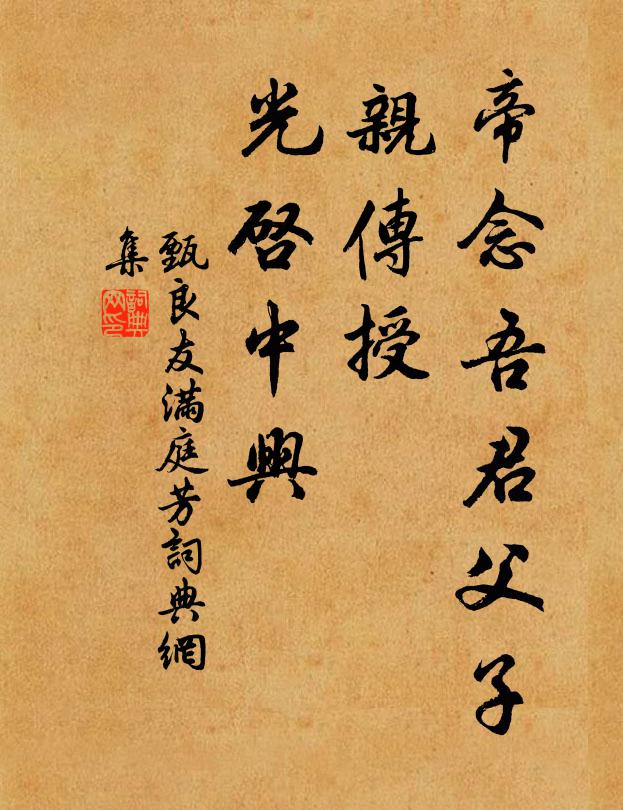 帝念吾君父子
親傳授
光啓中興
甄良友滿庭芳詞典網
集
詞典
网印